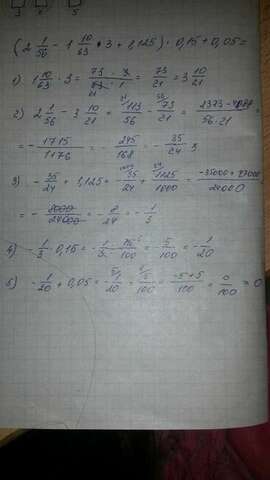 (2 1/56 - 1 10/63 • 3 + 1,125) • 0,15 + 0,05 =
1) 1 10/63 • 3 = 73 • 3 / 63 • 1 = 73/21 = 3 10/21
21
2) 2 1/56 - 3 10/21 = 113/56 - 73/21 = 2373 - 4088 / 56 • 21 =
= - 1715/1176 = - 245/168 = - 35/24
3) - 35/24 + 1,125 = - 35/24 + 1125/1000 = -35000 + 27000 / 24000
= - 8000/24000 = - 8/24 = - 1/3
4) - 1/3 • 0,15 = - 1/3 • 15/100 = - 5/100 = - 1/20
5) - 1/20 + 0,05 = - 1/20 + 5/100 = -5+5/100 = 0/100 = 0